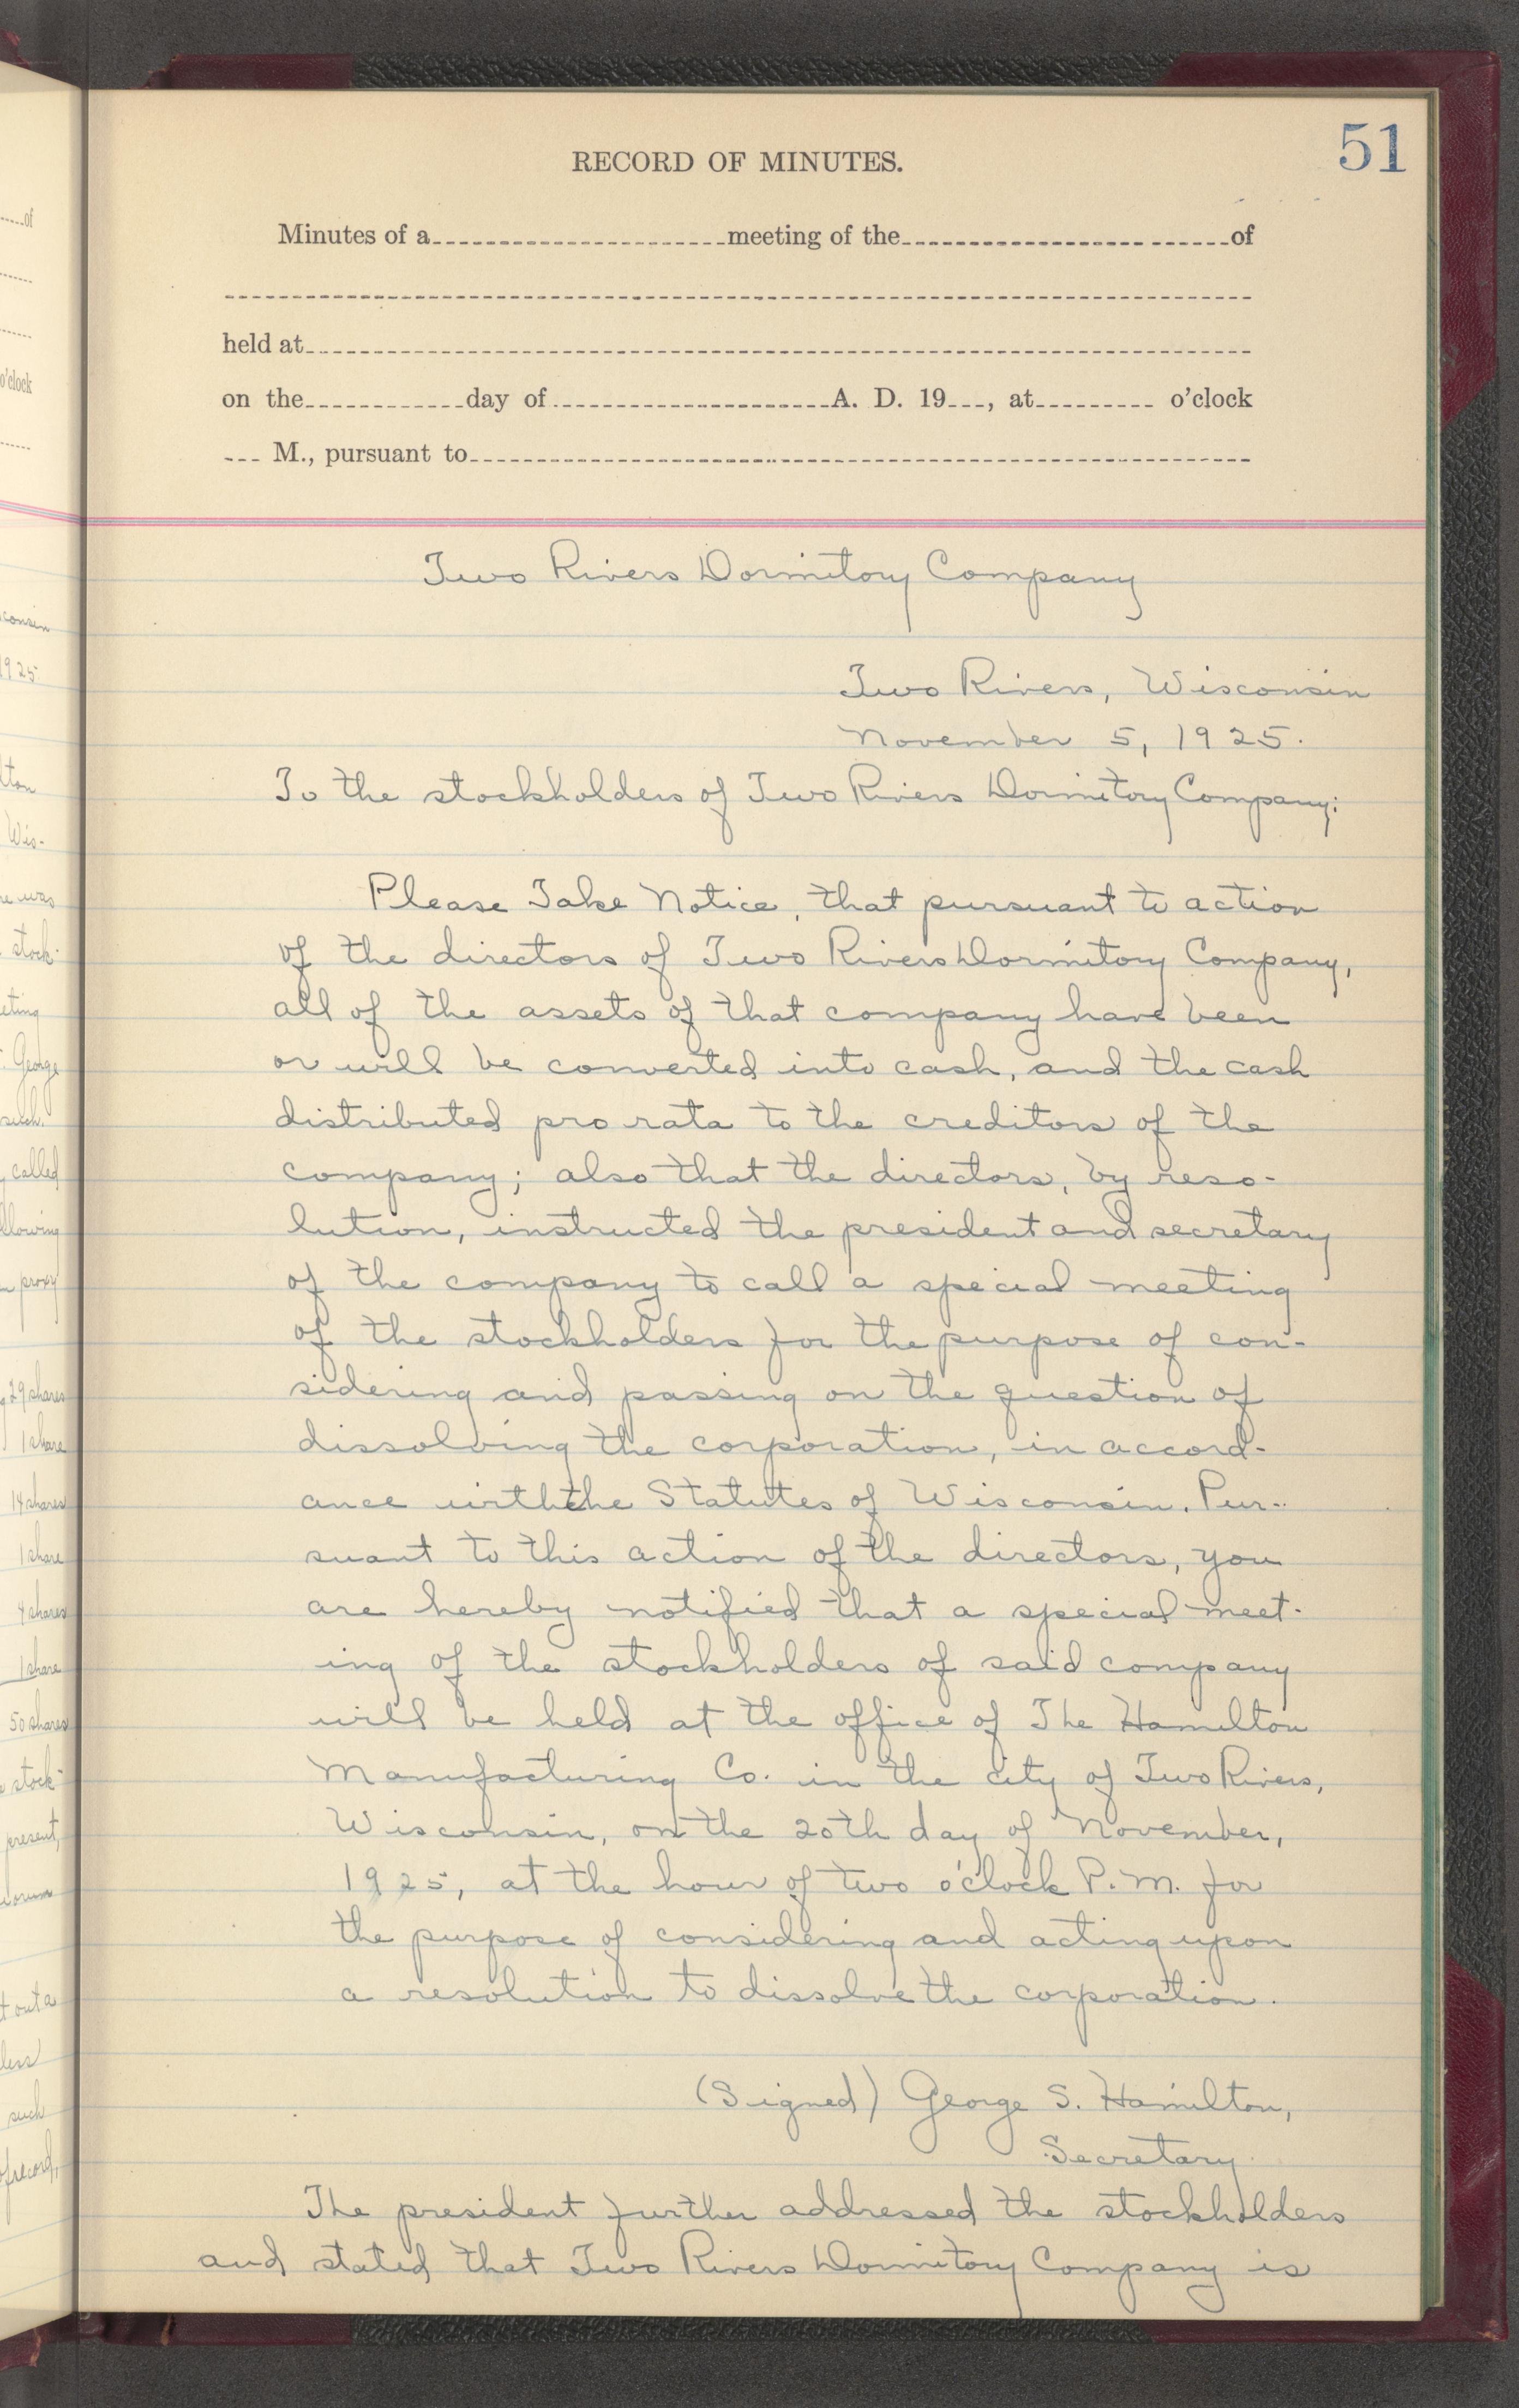 of
o'clock
consin
1925
lton
Wis-
re was
stock-
eting
George
such.
called
llowing
proxy
29 shares
1 share
14 shares
1 share
4 shares
1 share
50 shares
stock-
present,
uorum
out a
less
such
of record,
51
RECORD OF MINUTES.
Minutes of a meeting of the of
held at
on the day of A. D. 19, at o'clock
M., pursuant to
Two Rivers Dormitory Company
Two Rivers, Wisconsin
November 5, 1925.
To the stockholders of Two Rivers Dormitory Company:
Please Take Notice, that pursuant to action
of the directors of Two Rivers Dormitory Company,
all of the assets of that company have been
or will be converted into cash, and the cash
distributed pro rata to the creditors of the
company; also that the directors, by reso-
lution, instructed the president and secretary
of the company to call a special meeting
of the stockholders for the purpose of con-
sidering and passing on the question of
dissolving the corporation, in accord-
ance with the Statutes of Wisconsin. Pur-
suant to this action of the directors, you
are hereby notified that a special meet-
ing of the stockholders of said company
will be held at the office of The Hamilton
Manufacturing Co. in the city of Two Rivers,
Wisconsin, on the 20th day of November,
1925, at the hour of two o'clock P.M. for
the purpose of considering and acting upon
a resolution to dissolve the corporation.
(Signed) George S. Hamilton,
Secretary
The president further addressed the stockholders
and stated that Two Rivers Dormitory Company is